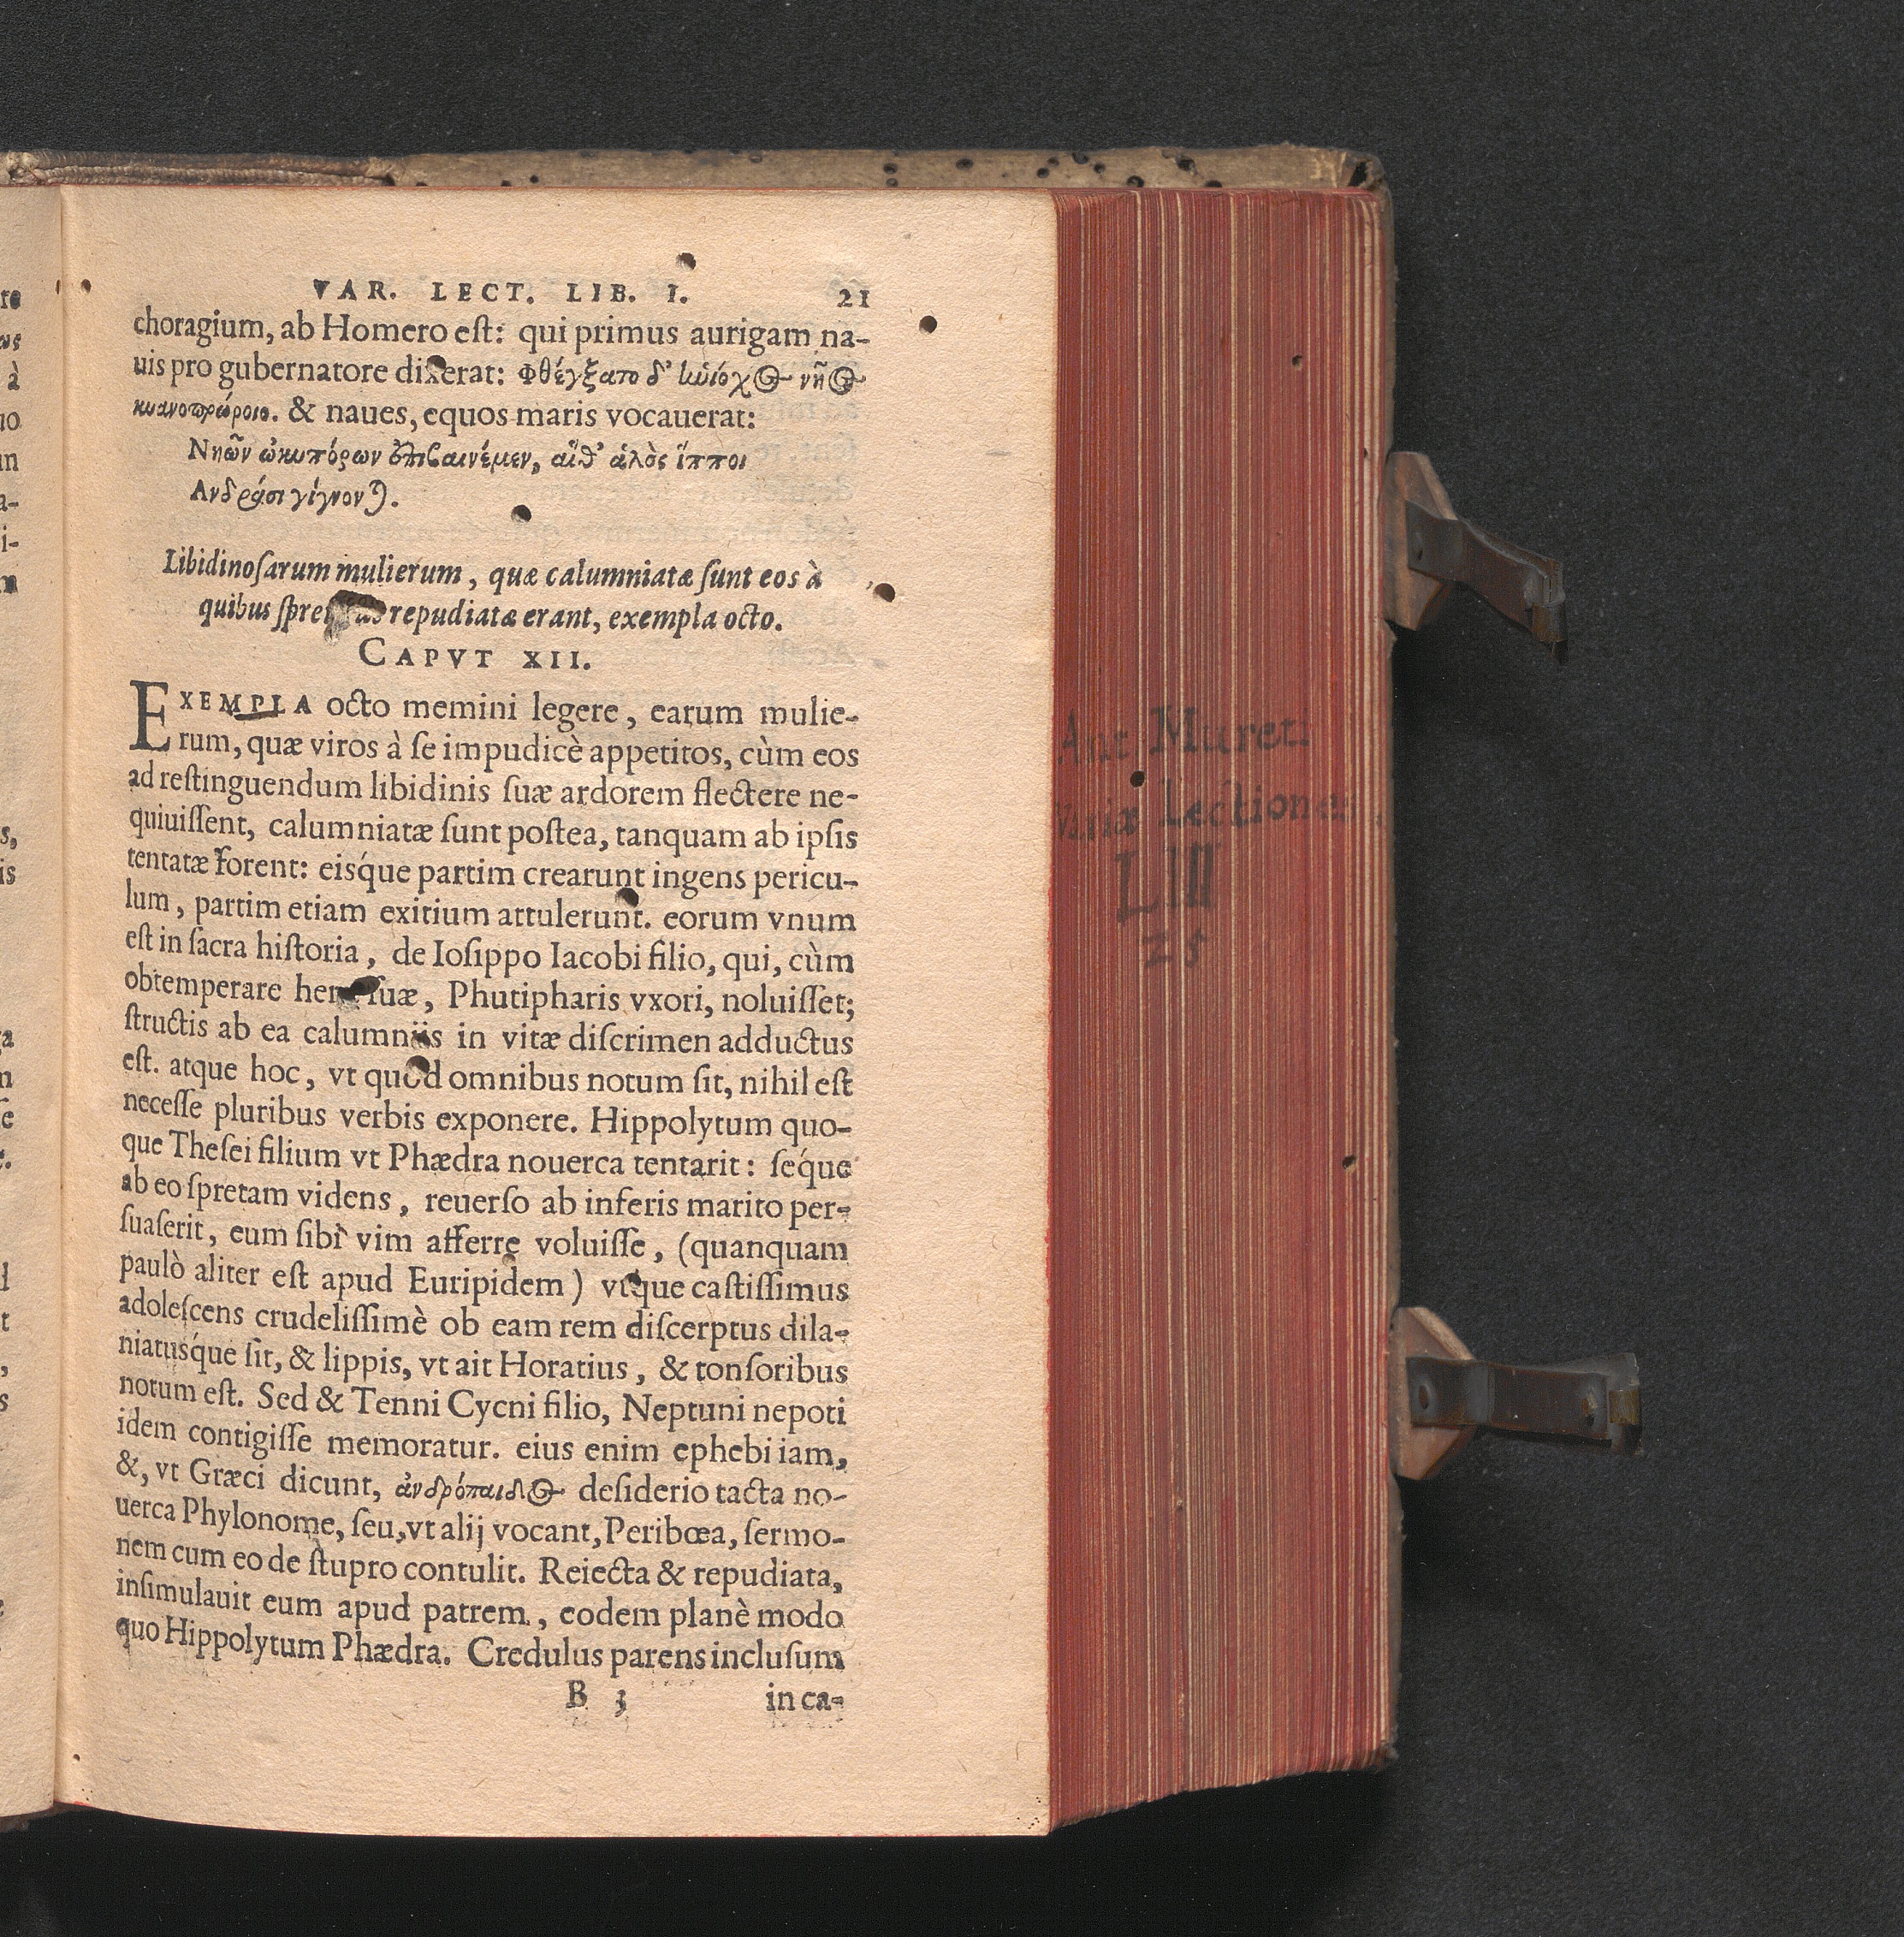 VAR. LECT. LIB. I. 21
choragium, ab Homero eſt: qui primus aurigam na-
uis pro gubernatore dixerat: Φθέγξατο δ' ἡνίοχος νηὸς
κυανοπρώροιο. & naues, equos maris vocauerat:
Νηῶν ὠκυπόρων ἐπιβαινέμεν, αἵθ' ἁλὸς ἵπποι
Ανδράσι γίγνονται.
Libidinoſarum mulierum, quæ calumniatæ ſunt eos à
quibus repudiatæ erant, exempla octo.
CAPVT XII.
EXEMPLA octo memini legere, earum mulie-
rum, quæ viros à ſe impudicè appetitos, cùm eos
ad reſtinguendum libidinis ſuæ ardorem flectere ne-
quiuiſſent, calumniatæ ſunt poſtea, tanquam ab ipſis
tentatæ forent: eisq́ue partim crearunt ingens pericu-
lum, partim etiam exitium attulerunt. eorum vnum
eſt in ſacra hiſtoria, de Ioſippo Iacobi filio, qui, cùm
obtemperare ſuæ, Phutipharis vxori, noluiſſet;
ſtructis ab ea calumniis in vitæ diſcrimen adductus
eſt. atque hoc, vt quod omnibus notum ſit, nihil eſt
neceſſe pluribus verbis exponere. Hippolytum quo-
que Theſei filium vt Phædra nouerca tentarit: ſeq́ue
ab eo ſpretam videns, reuerſo ab inferis marito per-
ſuaſerit, eum ſibi vim afferre voluiſſe, (quanquam
paulò aliter eſt apud Euripidem) vtque caſtiſſimus
adoleſcens crudeliſſimè ob eam rem diſcerptus dila-
niatusq́ue ſit, & lippis, vt ait Horatius, & tonſoribus
notum eſt. Sed & Tenni Cycni filio, Neptuni nepoti
idem contigiſſe memoratur. eius enim ephebi iam,
&, vt Græci dicunt, ἀνδρόπαιδος deſiderio tacta no-
uerca Phylonome, ſeu, vt alij vocant, Peribœa, ſermo-
nem cum eo de ſtupro contulit. Reiecta & repudiata,
inſimulauit eum apud patrem, eodem planè modo
quo Hippolytum Phædra. Credulus parens incluſum
B 3 in ca-
Ant Muret.
Variæ Lectiones
LIII
25